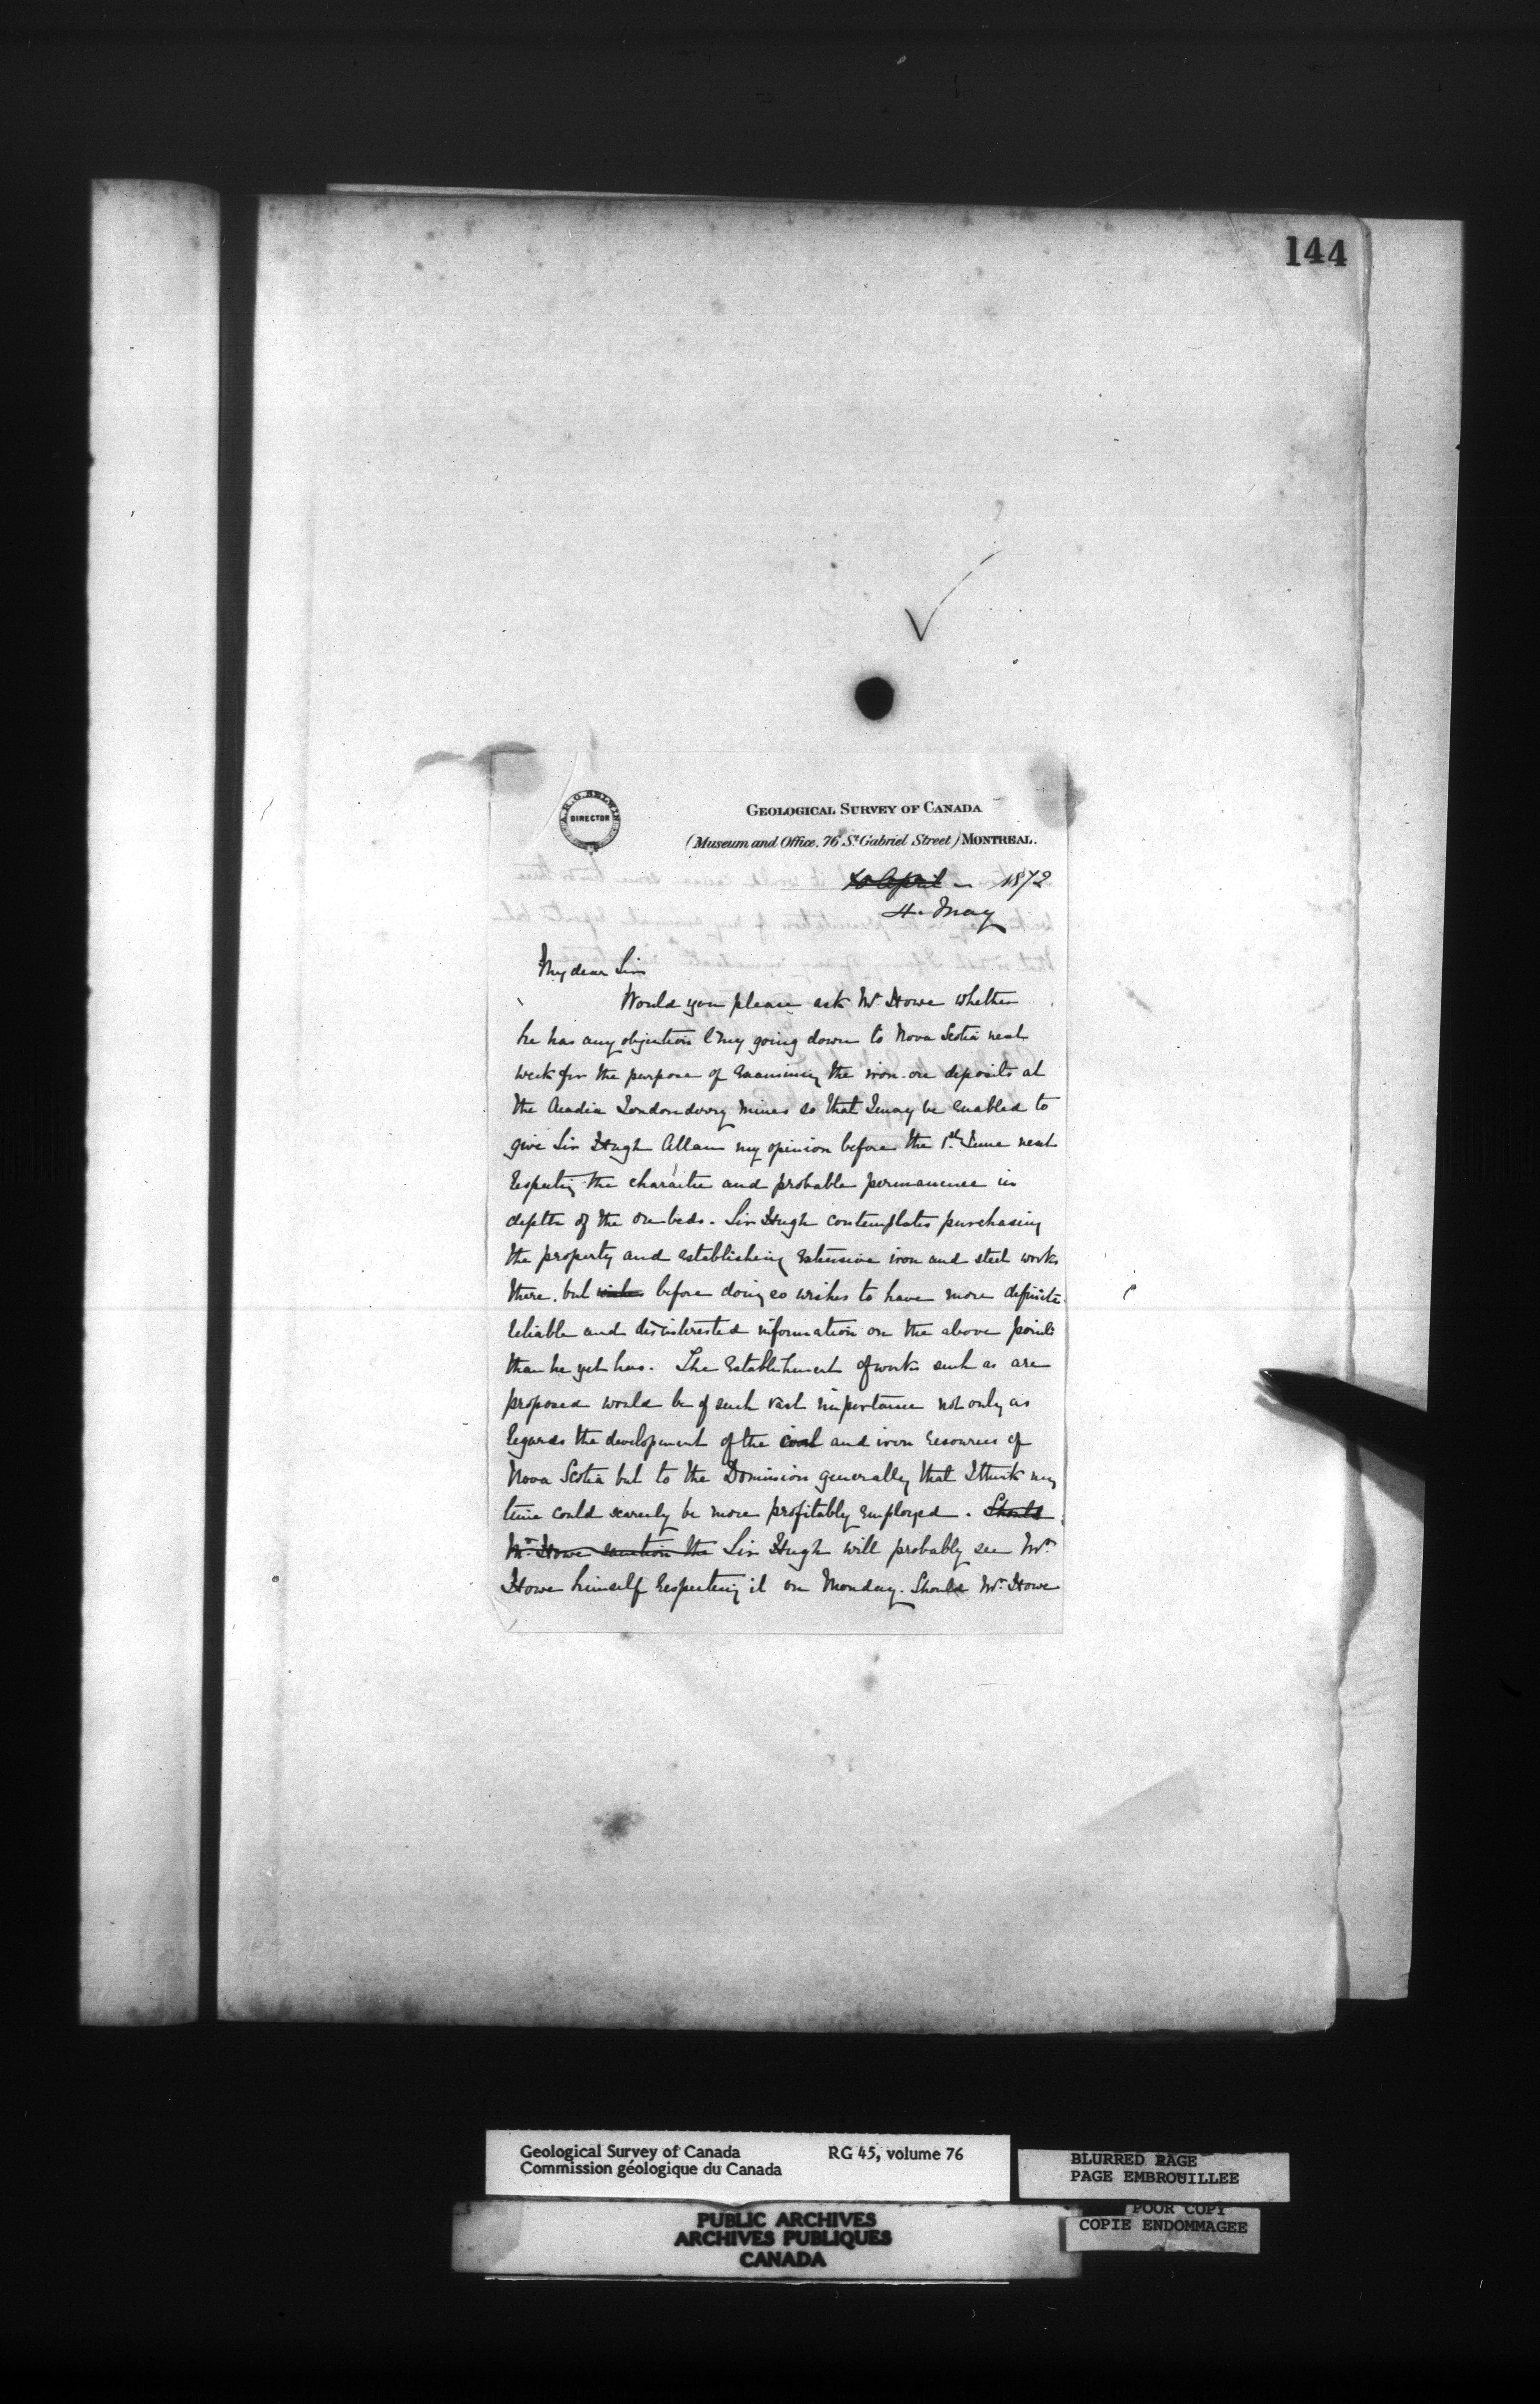 144
A.R.C. SELWYN
DIRECTOR
GEOLOGICAL SURVEY OF CANADA
(Museum and Office, 76 St Gabriel Street) MONTREAL.
April 1872
4. May
My dear Sir
Would you please ask Mr. Howe whether
he has any objection to my going down to Nova Scotia next
week for the purpose of examining the iron ore deposits at
the Acadia Londonderry mines so that I may be enabled to
give Sir Hugh Allan my opinion before the 1st June next
respecting the character and probable permanence in
depth of the ore beds. Sir Hugh contemplates purchasing
the property and establishing extensive iron and steel works
there. but wishes before doing so wishes to have more definite
reliable and disinterested information on the above points
than he yet has. The establishment of works such as are
proposed would be of such vast importance not only as
regards the development of the coal and iron resources of
Nova Scotia but to the Dominion generally that I think my
time could scarcely be more profitably employed. Should
Mr. Howe sanction the Sir Hugh will probably see Mr.
Howe himself respecting it on Monday. Should Mr. Howe
Geological Survey of Canada RG 45, volume 76
Commission géologique du Canada
BLURRED PAGE
PAGE EMBROUILLEE
POOR COPY
COPIE ENDOMMAGEE
PUBLIC ARCHIVES
ARCHIVES PUBLIQUES
CANADA